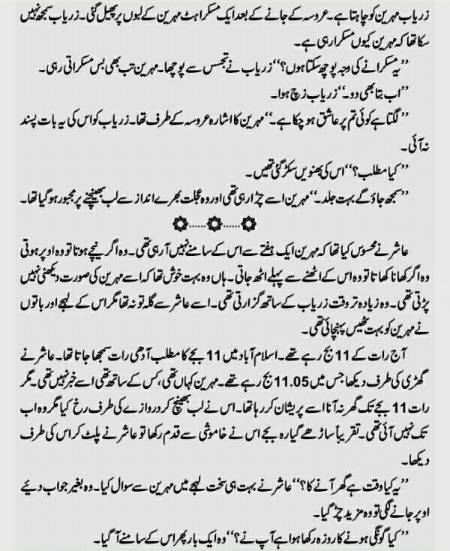 زریاب مہرین کو چاہتا ہے۔ عروسہ کے جانے کے بعد ایک مسکراہٹ مہرین کے لبوں پر پھیل گئی۔ زریاب سمجھ نہیں
سکا تھا کہ مہرین کیوں مسکرا رہی ہے۔
’’یہ مسکرانے کی وجہ پوچھ سکتا ہوں؟‘‘ زریاب نے تجسس سے پوچھا۔ مہرین تب بھی بس مسکراتی رہی۔
’’اب بتا بھی دو۔‘‘ زریاب زچ ہوا۔
’’لگتا ہے کوئی تم پر عاشق ہو چکا ہے۔‘‘ مہرین کا اشارہ عروسہ کے طرف تھا۔ زریاب کو اس کی یہ بات پسند
نہ آئی۔
’’کیا مطلب؟‘‘ اس کی بھنویں سکڑ گئی تھیں۔
’’سمجھ جاؤ گے بہت جلد۔‘‘ مہرین اسے چڑا رہی تھی اور وہ خجلت بھرے انداز سے لب بھینچنے پر مجبور ہو گیا تھا۔
عاشر نے محسوس کیا تھا کہ مہرین ایک ہفتے سے اس کے سامنے نہیں آ رہی تھی۔ وہ اگر نیچے ہوتا تو وہ اوپر ہوتی
وہ اگر کھانا کھاتا تو وہ اس کے اٹھنے سے پہلے اٹھ جاتی۔ ہاں وہ بہت خوش تھا کہ اسے مہرین کی صورت دیکھنی نہیں
پڑتی تھی۔ وہ زیادہ تر وقت زریاب کے ساتھ گزارتی تھی۔ اسے عاشر سے گلہ تو نہ تھا مگر اس کے لہجے اور باتوں
نے مہرین کو بہت ٹھیس پہنچائی تھی۔
آج رات کے 11 بج رہے تھے۔ اسلام آباد میں 11 بجے کا مطلب آدھی رات سمجھا جاتا تھا۔ عاشر نے
گھڑی کی طرف دیکھا جس میں 11.05 بج رہے تھے۔ مہرین کہاں تھی، کس کے ساتھ تھی اسے خبر نہیں تھی۔ مگر
رات 11 بجے تک گھر نہ آنا اسے پریشان کر رہا تھا۔ اس نے لب بھینچ کر دروازے کی طرف رخ کیا مگر وہ اب
تک نہیں آئی تھی۔ تقریباً ساڑھے گیارہ بجے اس نے خاموشی سے قدم رکھا تو عاشر نے پلٹ کر اس کی طرف
دیکھا۔
’’یہ کیا وقت ہے گھر آنے کا؟‘‘ عاشر نے بہت ہی سخت لہجے میں مہرین سے سوال کیا۔ وہ بغیر جواب دیئے
اوپر جانے لگی تو وہ مزید چڑ گیا۔
’’کیا گونگی ہونے کا روزہ رکھا ہوا ہے آپ نے؟‘‘ وہ ایک بار پھر اس کے سامنے آ گیا۔